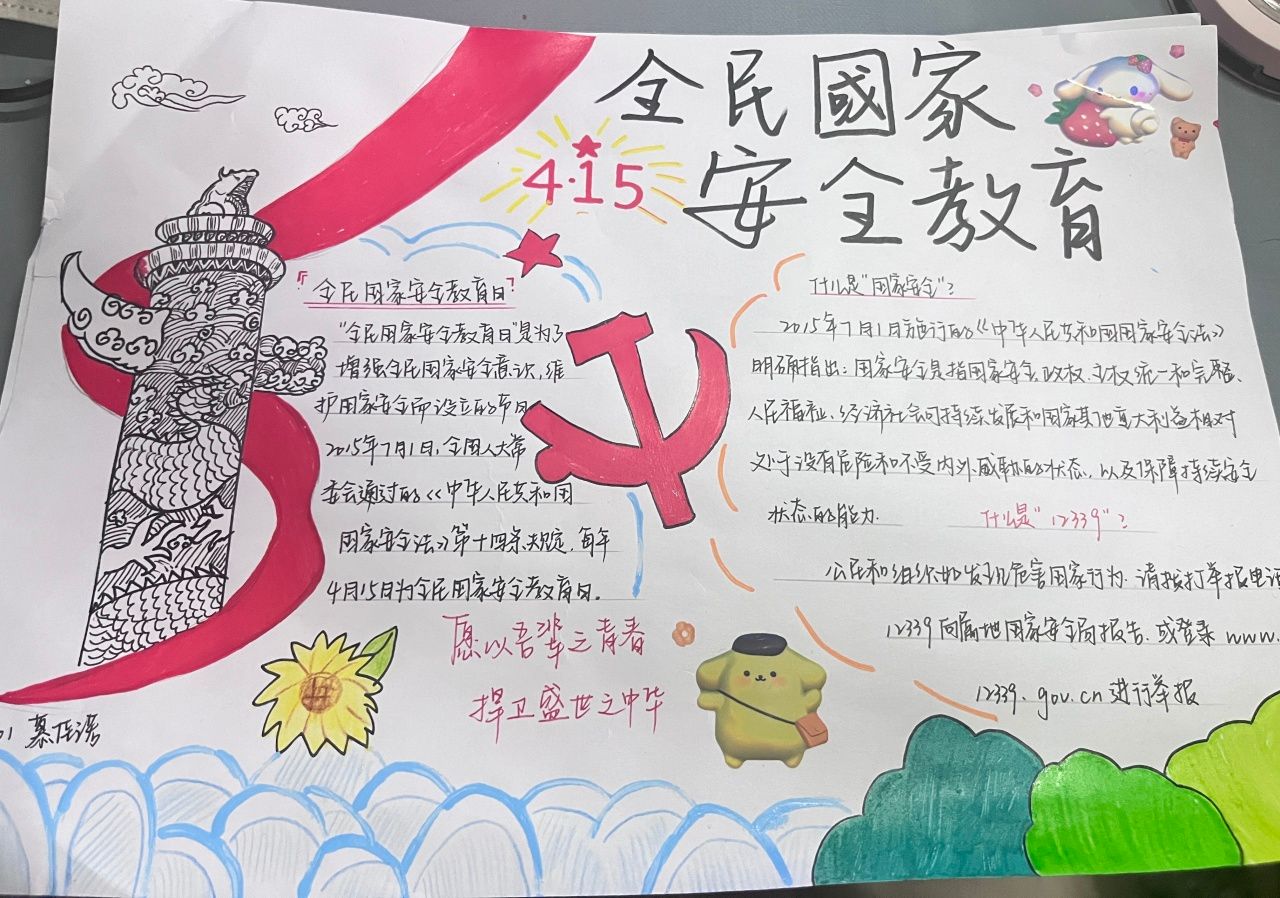 全民國家
安全教育
4·15
『全民国家安全教育日』
"全民国家安全教育日"是为了
增强全民国家安全意识,维
护国家安全而设立的节日。
2015年7月1日,全国人大常
委会通过的《中华人民共和国
国家安全法》第十四条规定,每年
4月15日为全民国家安全教育日。
愿以吾辈之青春
捍卫盛世之中华
什么是"国家安全"?
2015年7月1日施行的《中华人民共和国国家安全法》
明确指出:国家安全是指国家安全政权、主权统一和完整、
人民福祉、经济社会可持续发展和国家其他重大利益相对
处于没有危险和不受内外威胁的状态,以及保障持续安全
状态的能力.
什么是"12339"?
公民和组织如发现危害国家行为.请拨打举报电话
12339向属地国家安全局报告.或登录www.
12339.gov.cn进行举报